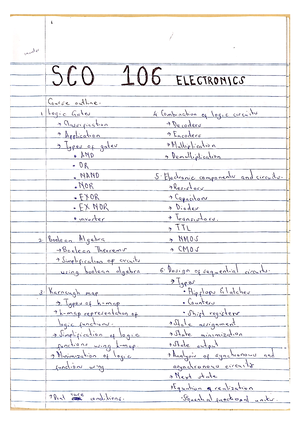 SCO 106 ELECTRONICS
Course outline.
1. Logic Gates
→ Classification
→ Application
→ Types of gates
• AND
• OR
• NAND
• NOR
• EXOR
• EX NOR
• inverter
2. Boolean Algebra
→ Boolean Theorems
→ Simplification of circuits
using boolean algebra
3. Karnaugh map
→ Types of k-map
→ k-map representation of
logic functions.
→ Simplification of logic
functions using k-map
→ Minimization of logic
functions using
→ Don't care conditions.
4. Combination of logic circuits
→ Decoders
→ Encoders
→ Multiplication
→ Demultiplication
5. Electronic components and circuits.
→ Resistors
→ Capacitors
→ Diodes
→ Transistors
→ TTL
→ NMOS
→ CMOS
6. Design of sequential circuits.
→ Types
• Flipflops &latches
• Counters
• Shift registers
→ State assignment
→ State minimization
→ State output
→ Analysis of synchronous and
asynchronous circuits
→ Next state
→ Equation & realization